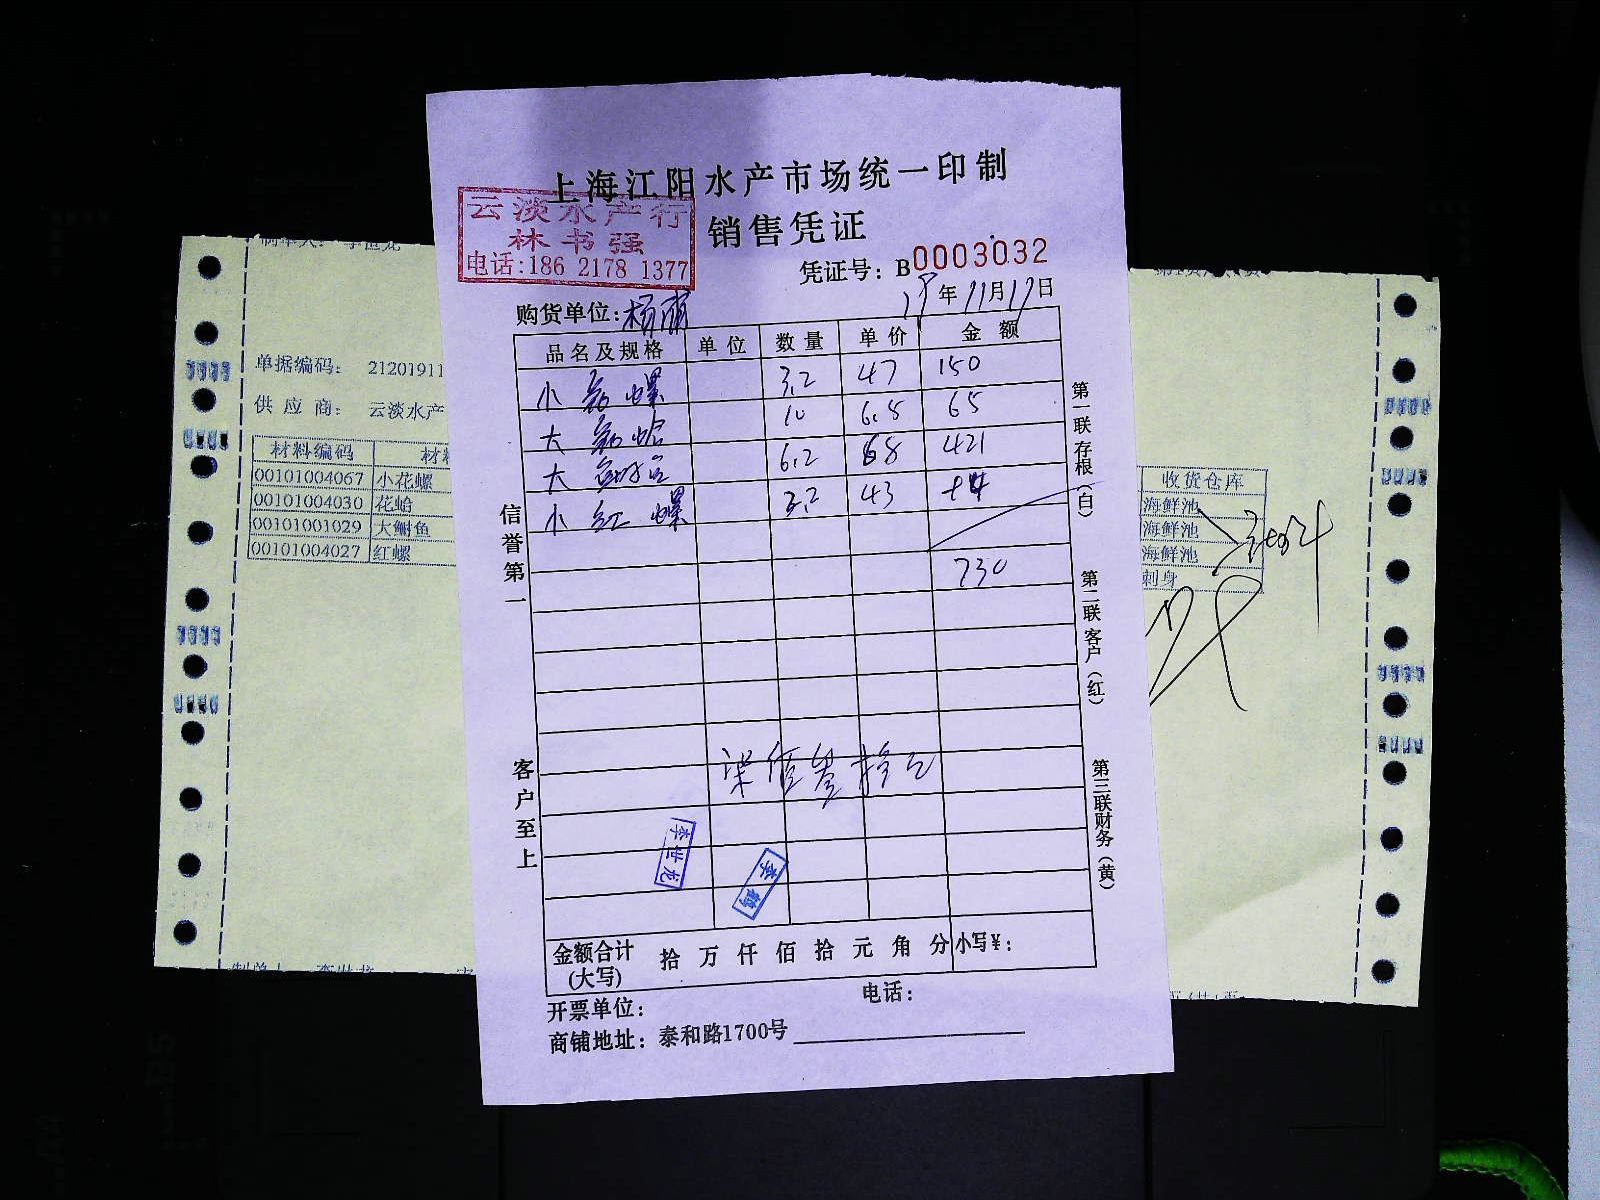 上海江阳水产市场统一印制
销售凭证
云淡水产行
林书强
电话:186 2178 1377
凭证号: B0003032
19年11月17日
购货单位:
品名及规格 单位 数量 单价 金额
小 螺 3.2 47 150
大 蛤 10 6.5 65
大 6.2 68 421
小 红 螺 2.2 43
730
信誉第一
客户至上
第一联存根(白)
第二联客户(红)
第三联财务(黄)
李世龙
李鹤
金额合计(大写) 拾 万 仟 佰 拾 元 角 分 小写¥:
开票单位: 电话:
商铺地址: 泰和路1700号
单据编码: 21201911
供 应 商: 云淡水产
材料编码
00101004067 小花螺
00101004030 花蛤
00101001029 大鲥鱼
00101004027 红螺
收货仓库
海鲜池
海鲜池
海鲜池
刺身